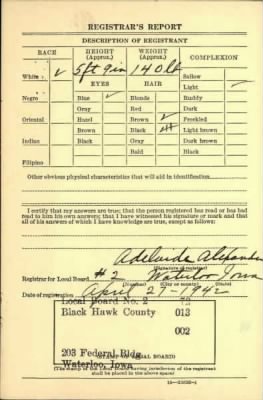 REGISTRAR'S REPORT
DESCRIPTION OF REGISTRANT
RACE
HEIGHT (Approx.)
WEIGHT (Approx.)
COMPLEXION
White ✓ 5ft 9in 140 lb Sallow
EYES HAIR Light ✓
Negro Blue ✓ Blonde Ruddy
Gray Red Dark
Oriental Hazel Brown ✓ Freckled
Brown Black Light brown
Indian Black Gray Dark brown
Bald Black
Filipino
Other obvious physical characteristics that will aid in identification
I certify that my answers are true; that the person registered has read or has had
read to him his own answers; that I have witnessed his signature or mark and that
all of his answers of which I have knowledge are true, except as follows:
Adelaide
(Signature of registrar)
Registrar for Local Board #2 Waterloo Iowa
(Number) (City or county) (State)
Date of registration April 27-1942
Local Board No. 2
Black Hawk County 013
002
203 Federal Bldg.
Waterloo, Iowa
(STAMP OF LOCAL BOARD)
(The stamp of the Local Board having jurisdiction of the registrant
shall be placed in the above space)